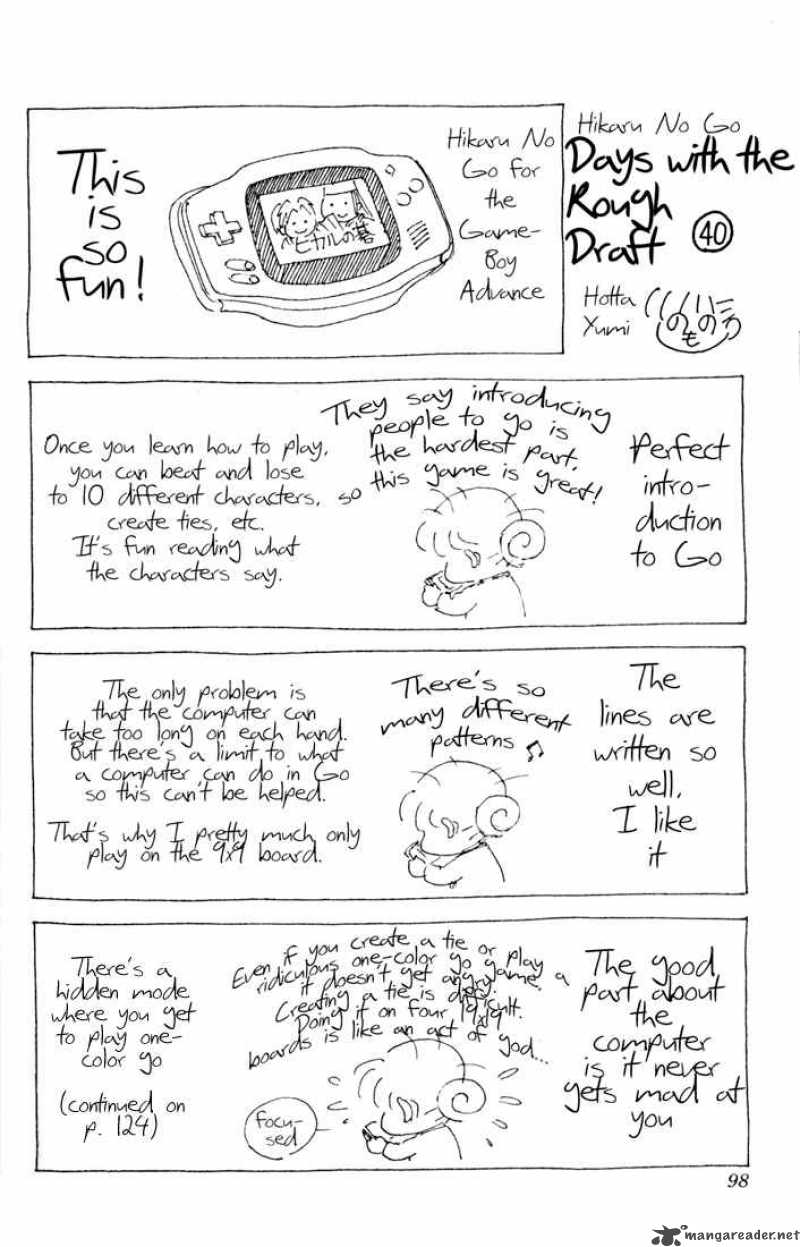 Hikaru No Go
Days with the
Rough
Draft 40
Hotta
Yumi
Hikaru No
Go for
the
Game-
Boy
Advance
ヒカルの碁
This
is
so
fun!
Perfect
intro-
duction
to Go
They say introducing
people to go is
the hardest part,
so this game is great!
Once you learn how to play,
you can beat and lose
to 10 different characters,
create ties, etc.
It's fun reading what
the characters say.
The
lines are
written so
well,
I like
it
There's so
many different
patterns ♫
The only problem is
that the computer can
take too long on each hand.
But there's a limit to what
a computer can do in Go
so this can't be helped.
That's why I pretty much only
play on the 9x9 board.
The good
part about
the
computer
is it never
gets mad at
you
Even if you create a tie or play a
ridiculous one-color go game,
it doesn't get angry.
Creating a tie is difficult.
Doing it on four 19x19
boards is like an act of god...
focu-
sed
There's a
hidden mode
where you get
to play one-
color go
(continued on
p. 124)
98
mangareader.net